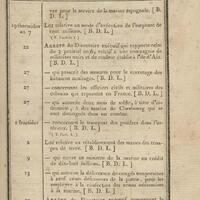 vrer pour le service de la marine espagnole. [ B.
D. L. ]
19 thermidor an 7
Loi relative au mode d'exécution de l'emprunt de
cent millions. [ B. D. L. ]
22
ARRÊTÉ du Directoire exécutif qui rapporte celui
du 3 prairial an 6, relatif à une compagnie de
militaires noirs et de couleur établie à l'île d'Aix.
[ B. D. L. ]
27
— qui prescrit des mesures pour le
bâtimens [ B. D. L. ]
27
— concernant les officiers civils et militaires des
colonies qui repassent en France. [ B. D. L. ]
27
— qui accorde deux mois de solde, à titre d'in-
demnité, à des marins de Cherbourg qui se
sont distingués dans un combat. [ B. D. L. ]
2 fructidor
— concernant le transport des poudres dans l'in-
térieur. [ B. D. L. ]
8
Loi relative au rétablissement des masses des trou-
pes de terre. [ B. D. L. ]
9
— qui ouvre au ministre de la marine un crédit
de millions. [ B. D. L. ]
13
— qui autorise la délivrance de congés temporaires
à neuf cents défenseurs de la patrie, pour les
employer à la confection des armes nécessaires
à la marine. [ B. D. L. ]